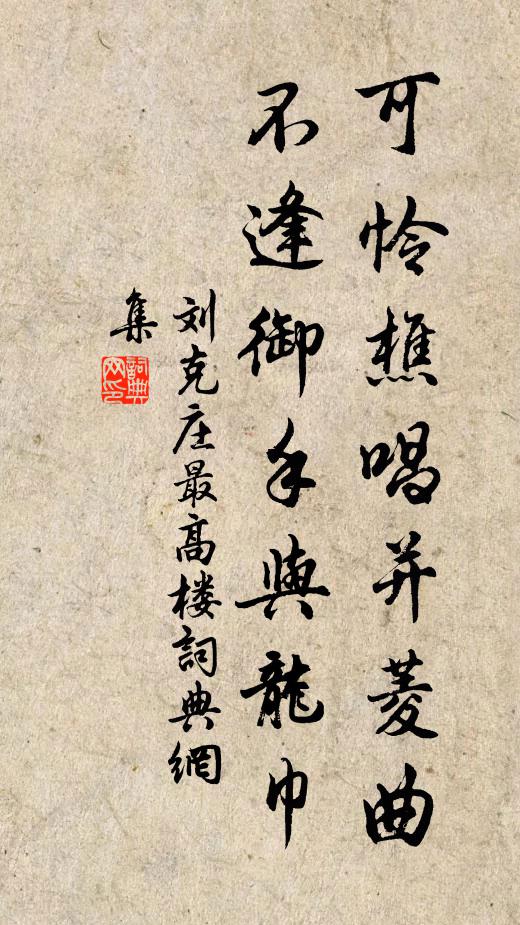 可怜樵唱并菱曲
不逢御手与龍巾
刘克庄最高楼詞典網
集
詞典网印